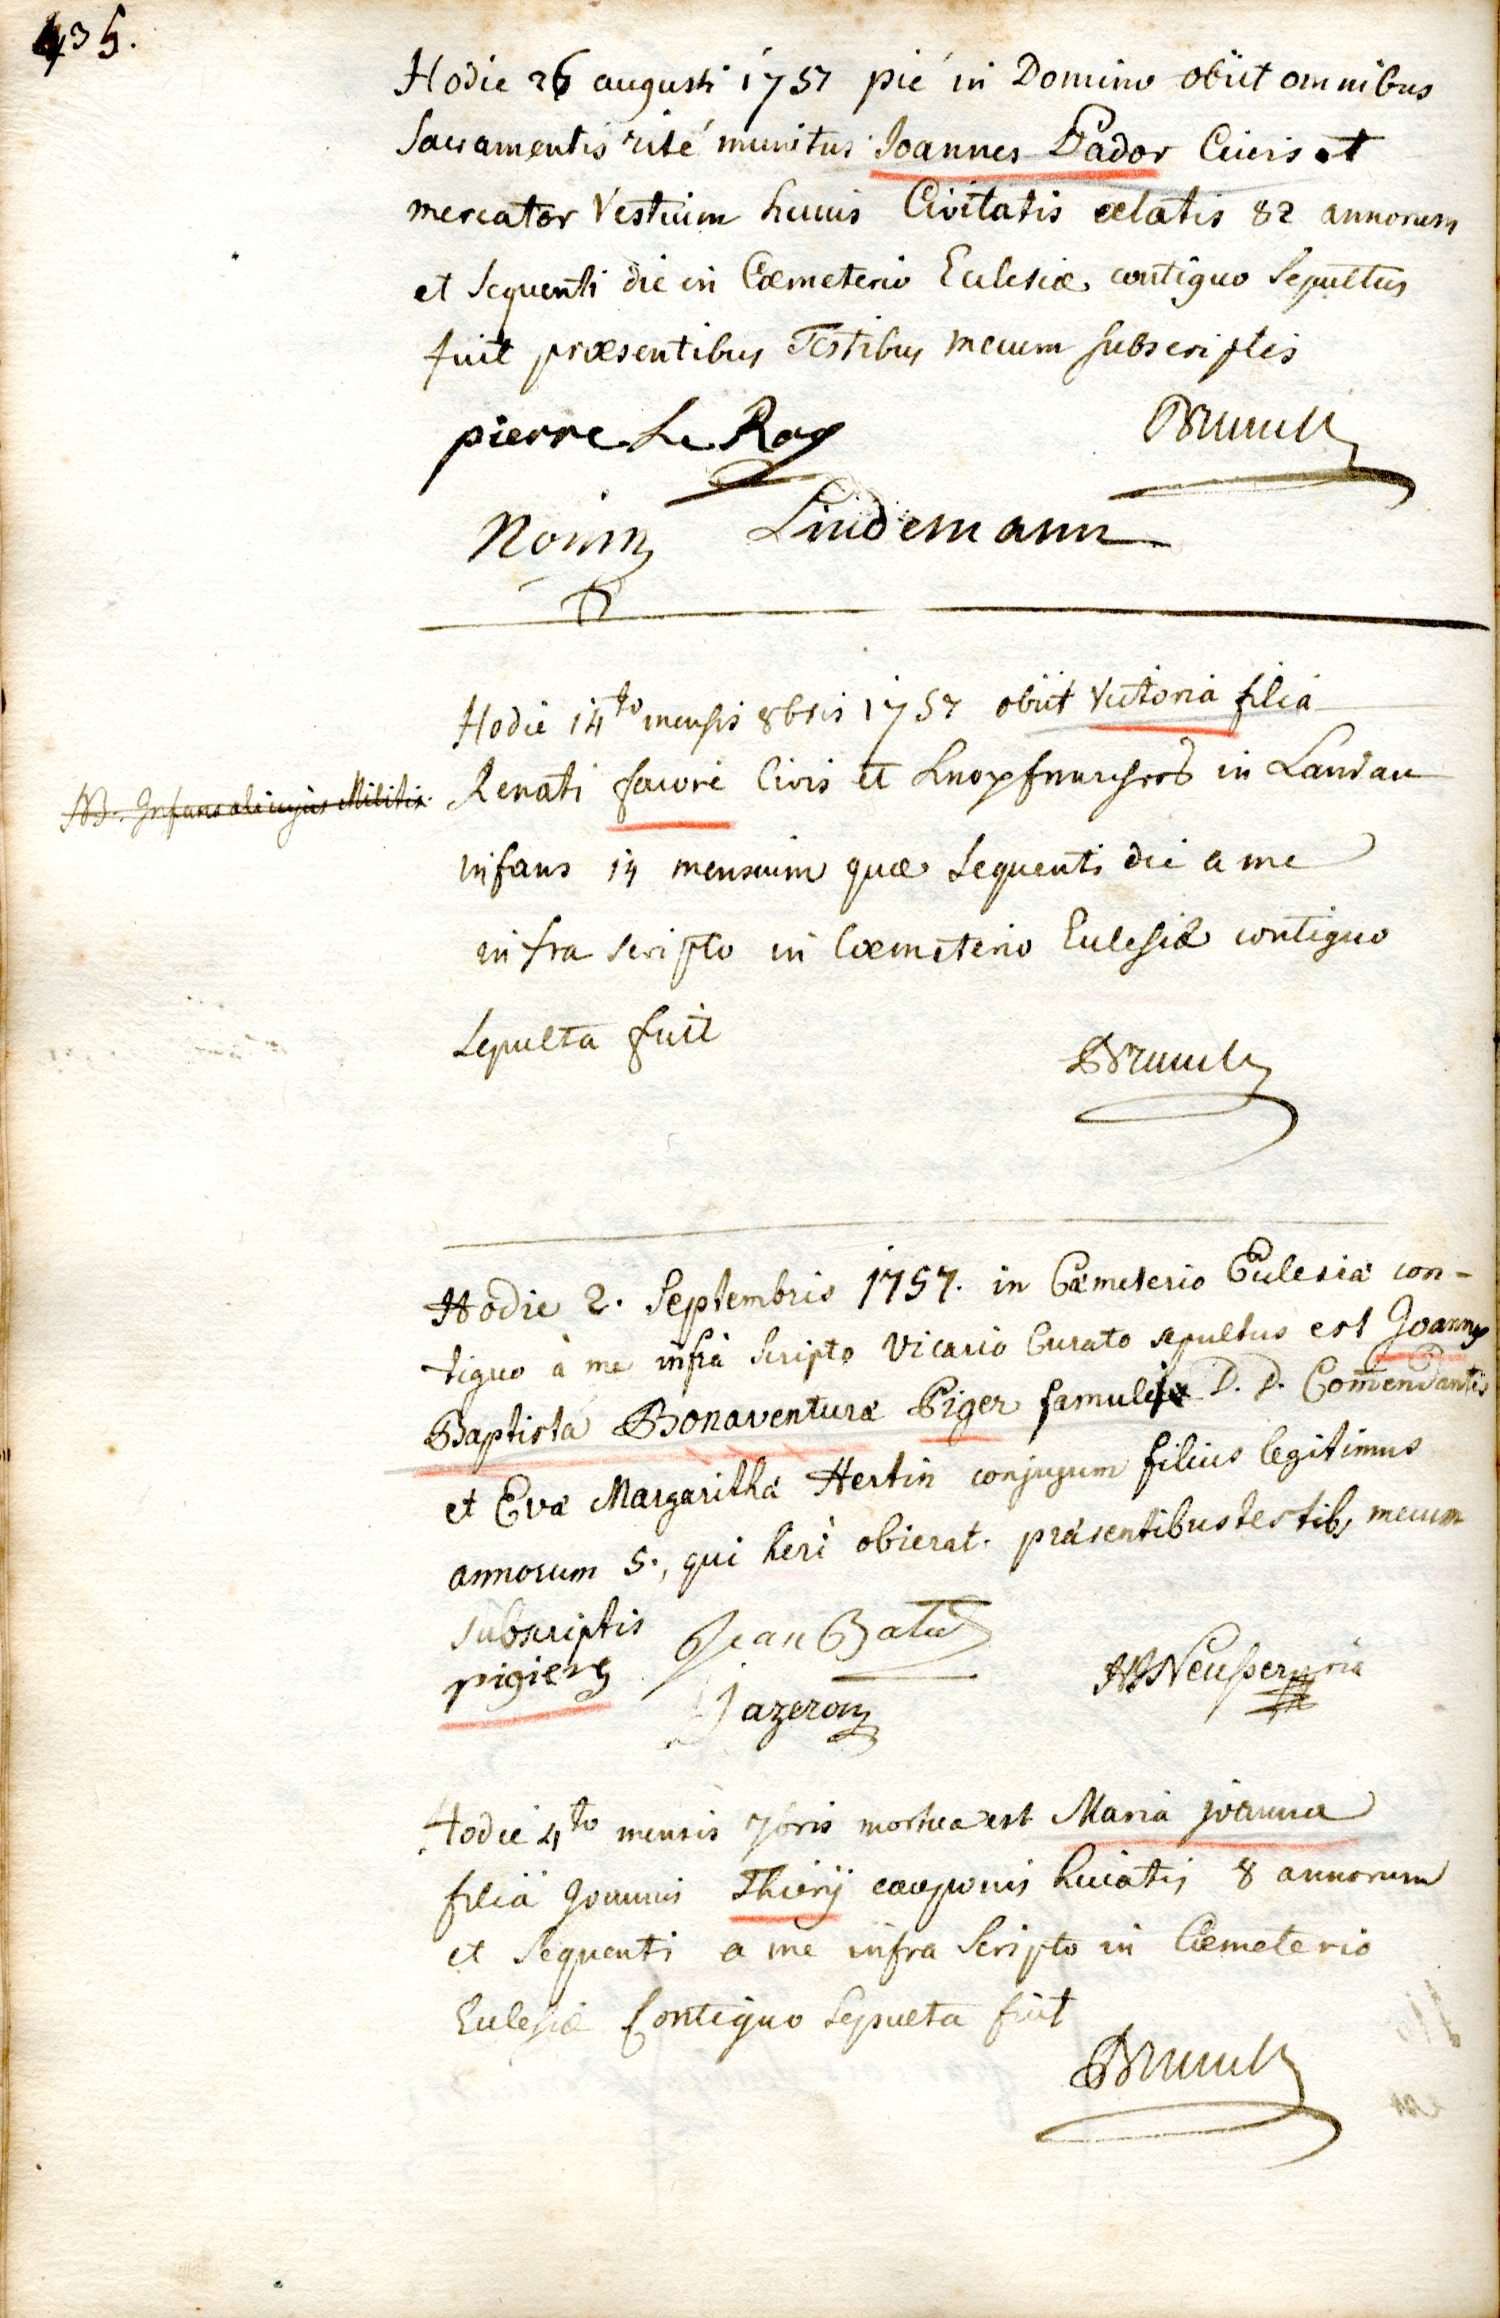 435.
Hodie 26 augusti 1757 pié in Domino obiit omnibus
Sacramentis rité munitus Joannes Pador Civis et
mercator Vestium huius Civitatis aetatis 82 annorum
et sequenti die in Cœmeterio Ecclesiæ contiguo Sepultus
fuit præsentibus Testibus mecum subscriptis
pierre Le Roy Brunck
Noirin Lindemann
Hodie 14to mensis 8bris 1757 obiit Victoria filia
NB. Infans alicujus Militis.
Renati favore Civis et in Landau
infans 14 mensium quæ sequenti die a me
infra scripto in Cœmeterio Ecclesiæ contiguo
Sepulta fuit
Brunck
Hodie 2. Septembris 1757. in Cæmeterio Ecclesiæ con-
tiguo à me infrà scripto Vicario Curato sepultus est Joannes
Baptista Bonaventura Piger famuli D. D. Comendantis
et Evæ Margarithæ Hertin conjugum filius legitimus
annorum 5., qui heri obierat. præsentibus testib, mecum
subscriptis
Jean
pigiere
Jazeron
Hodie 4to mensis 7bris mortua est Maria joanna
filia Joannis Thiery cauponis huiatis 8 annorum
et sequenti a me infra scripto in Cœmeterio
Ecclesiæ Contiguo Sepulta fuit
Brunck